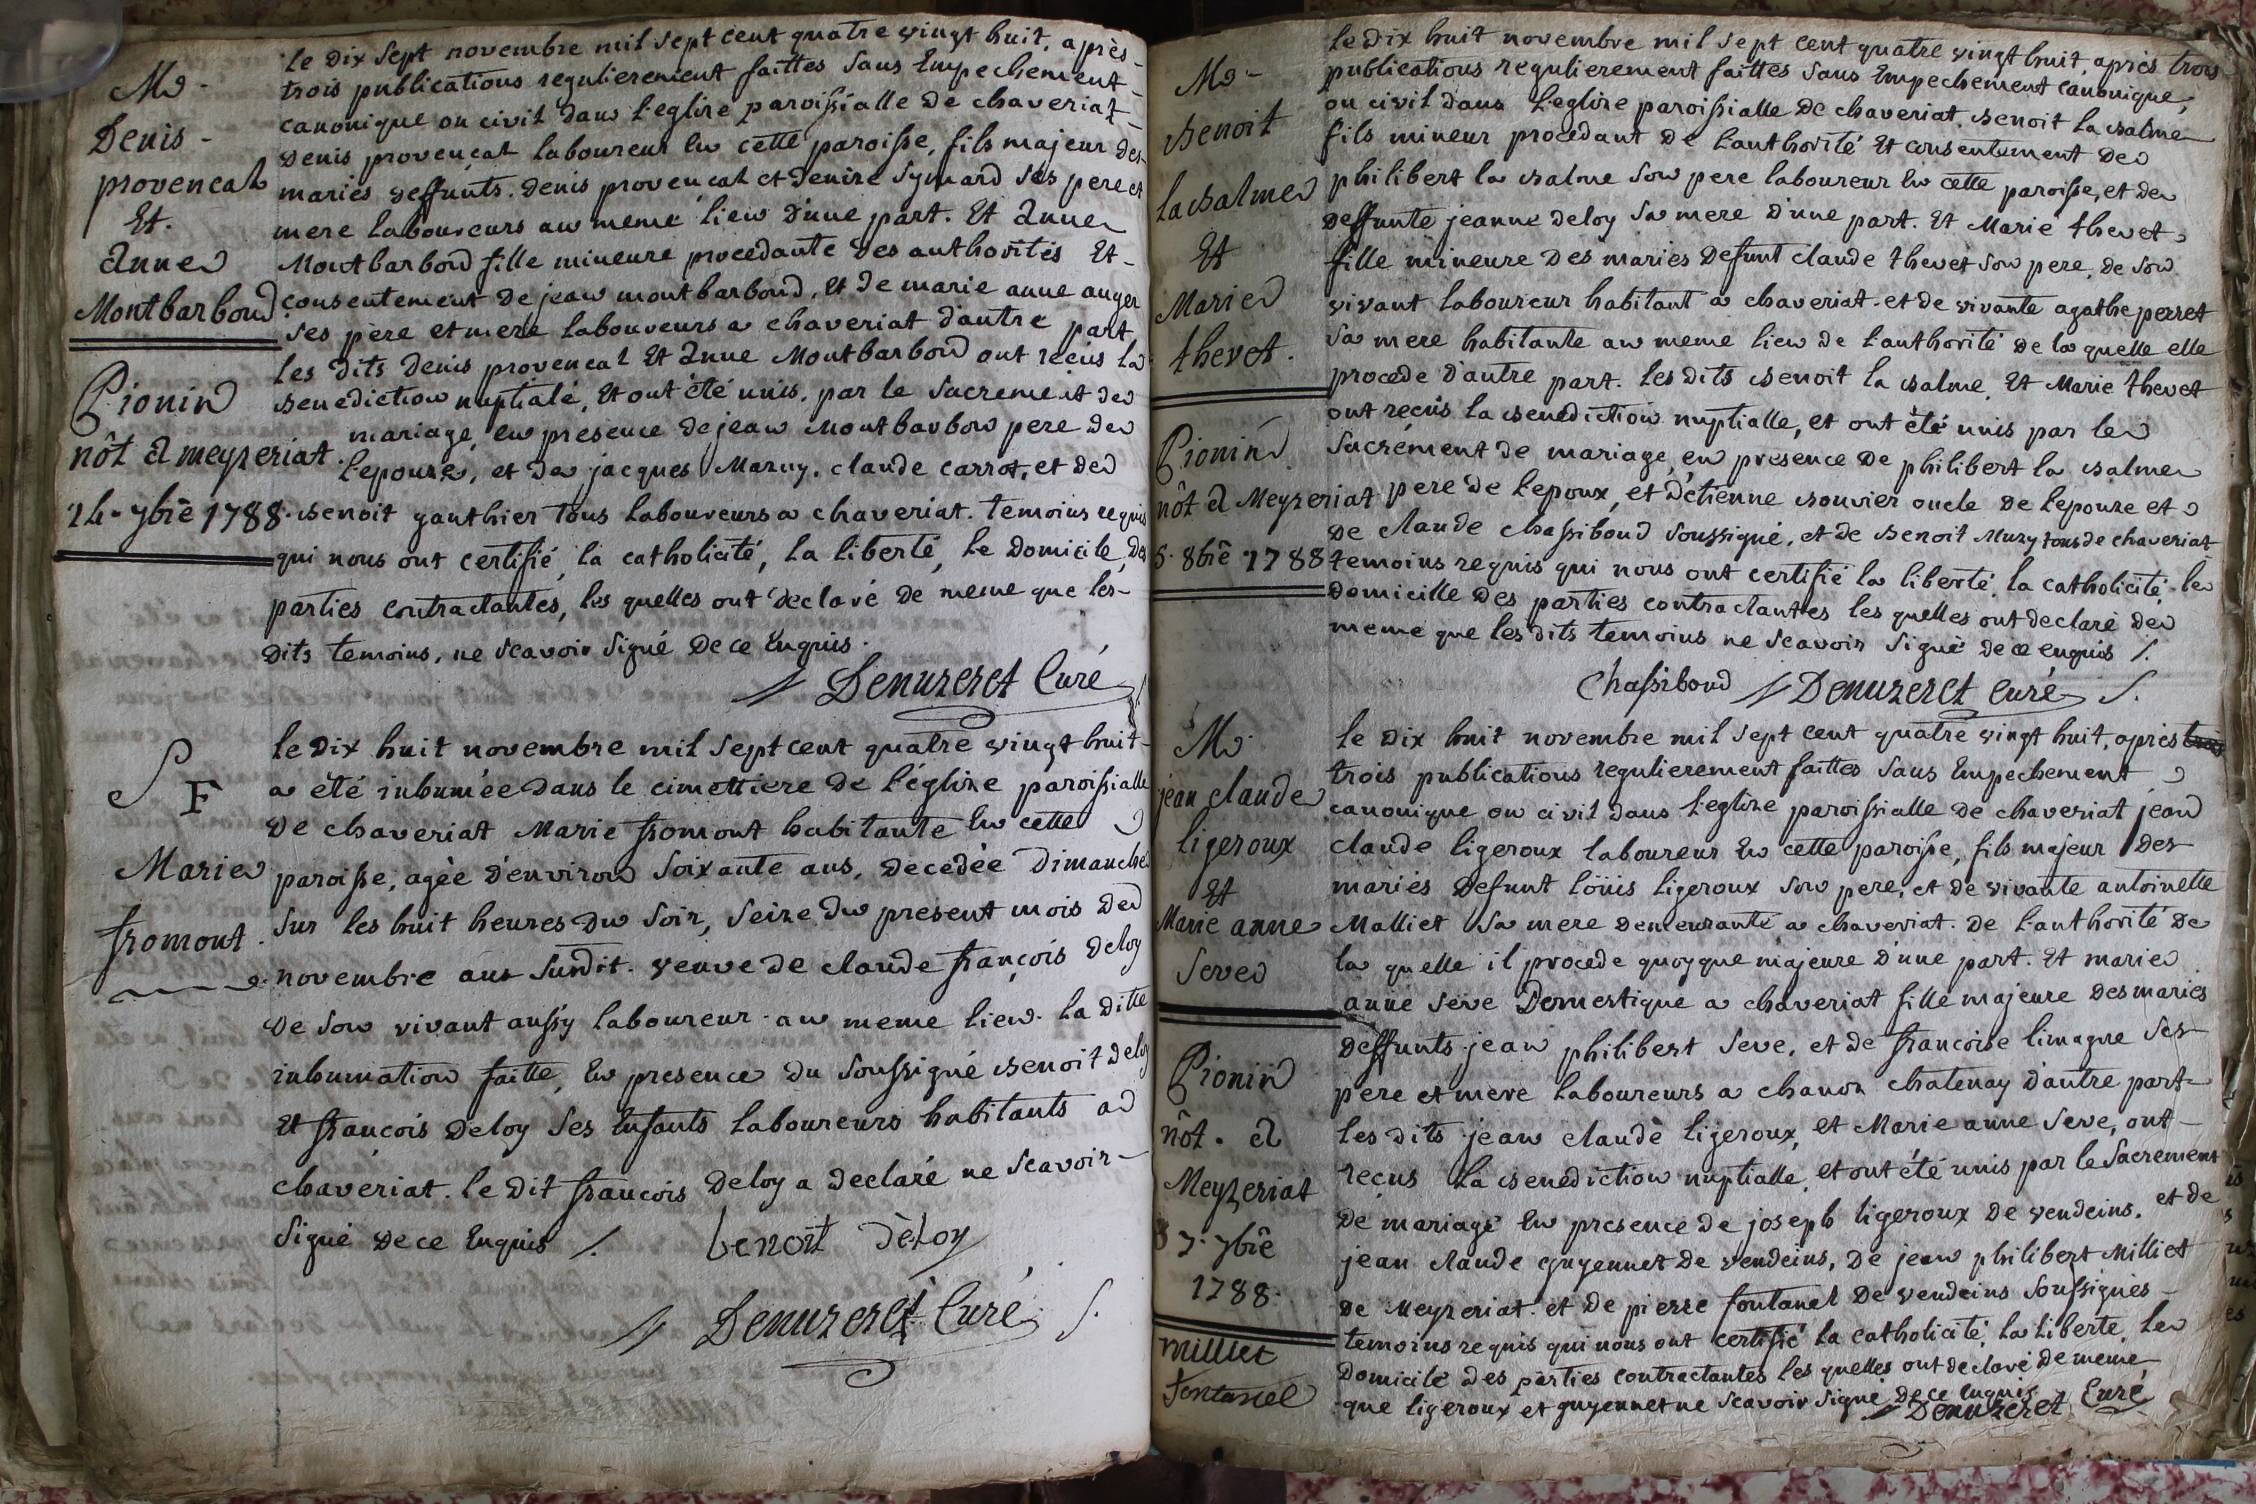 Mo.
Denis
provencal
Et.
Anne
Montbarbon
Pionin
nôt à meyzeriat.
14. 7bre 1788.
le dix sept novembre mil sept cent quatre vingt huit, après
trois publications regulierement faittes sans Empechement
canonique ou civil dans l'eglise paroissialle de chaveriat
Denis provençal laboureur en cette paroisse, fils majeur des
mariés deffunts. denis provençal et denise Symard ses pere et
mere laboureurs au meme lieu d'une part. Et Anne
Montbarbon fille mineure procedante des authorités Et
consentement de jean montbarbond, et de marie anne auger
ses père et mere laboureurs a chaveriat d'autre part
les dits denis provencal Et Anne Montbarbon ont reçus la
benediction nuptiale, Et ont été unis, par le Sacrement de
mariage, en presence de jean Montbarbon pere de
l'epouse, et de jacques Mazuy, claude carrot, et de
benoit ganthier tous laboureurs a chaveriat. temoins requis
qui nous ont certifié, la catholicité, la liberté, le domicile, des
parties contractantes, les quelles ont déclaré de meme que les
dits temoins, ne scavoir signé de ce Enquis.
Denuzeret Curé
S F
Marie
fromont.
le dix huit novembre mil sept cent quatre vingt huit
a été inhumée dans le cimettiere de l'églize paroissialle
de chaveriat Marie fromont habitante en cette
paroisse, agèe d'environ soixante ans, decedée dimanche
sur les huit heures du soir, seize du present mois de
novembre an susdit. veuve de claude françois deloy
de son vivant aussy laboureur au meme lieu. la ditte
inhumation faitte, en presence du soussigné benoit deloy
Et françois deloy ses Enfants laboureurs habitants a
chaveriat. le dit françois deloy a declaré ne scavoir
signé de ce Enquis /.
benoit dèloy
Denuzeret Curé
Mo.
benoit
la balme
Et
Marie
thevet.
Pionin
nôt à Meyzeriat
5. 8bre 1788
le dix huit novembre mil sept cent quatre vingt huit, après trois
publications regulierement faittes sans Empechement canonique,
ou civil dans l'eglise paroissialle de chaveriat, benoit la balme
fils mineur procédant de l'authorité Et consentement de
philibert la balme son pere laboureur en cette paroisse, et de
deffunte jeanne deloy sa mere d'une part. Et Marie thevet
fille mineure des mariés defunt claude thevet son pere, de son
vivant laboureur habitant a chaveriat et de vivante agathe perret
sa mere habitante au meme lieu de l'authorité de la quelle elle
procede d'autre part. les dits benoit la balme, Et Marie thevet
ont reçus la benediction nuptialle, et ont été unis par le
Sacrement de mariage, en presence de philibert la balme
pere de l'epoux, et d'etienne bouvier oncle de l'epouse et
de claude chassiboud soussigné, et de benoit Muzy tous de chaveriat
temoins requis qui nous ont certifié la liberté, la catholicité, le
domicille des parties contractantes les quelles ont declaré de
meme que les dits temoins ne scavoir signé de ce enquis /.
Chassiboud Denuzeret curé
Mo.
jean claude
ligeroux
et
Marie anne
Seve
Pionin
nôt. à
Meyzeriat
7. 7bre
1788.
milliet
fontanel
le dix huit novembre mil sept cent quatre vingt huit, après trois
trois publications regulierement faittes sans Empechement
canonique ou civil dans l'eglize paroissialle de chaveriat jean
claude ligeroux laboureur en cette paroisse, fils majeur des
mariés defunt loüis ligeroux son pere, et de vivante antoinette
Malliet sa mere demeurante a chaveriat. de l'authorité de
la quelle il procede quoyque majeure d'une part. Et marie
anne seve Domestique a chaveriat fille majeure des mariés
deffunts jean philibert seve, et de francoise limagne ses
pere et mere laboureurs a chanoz chatenay d'autre part
les dits jean claude ligeroux, et Marie anne seve, ont
reçus la benediction nuptialle, et ont été unis par le Sacrement
de mariage en presence de joseph ligeroux de vendeins, et de
jean claude guyennet de vendeins, de jean philibert Milliet
de Meyzeriat. et de pierre fontanel de vendeins soussignés
temoins requis qui nous ont certifié la catholicité, la liberte, le
Domicile des parties contractantes les quelles ont declaré de meme
que ligeroux et guyennet ne scavoir signé de ce enquis
Denuzeret Curé